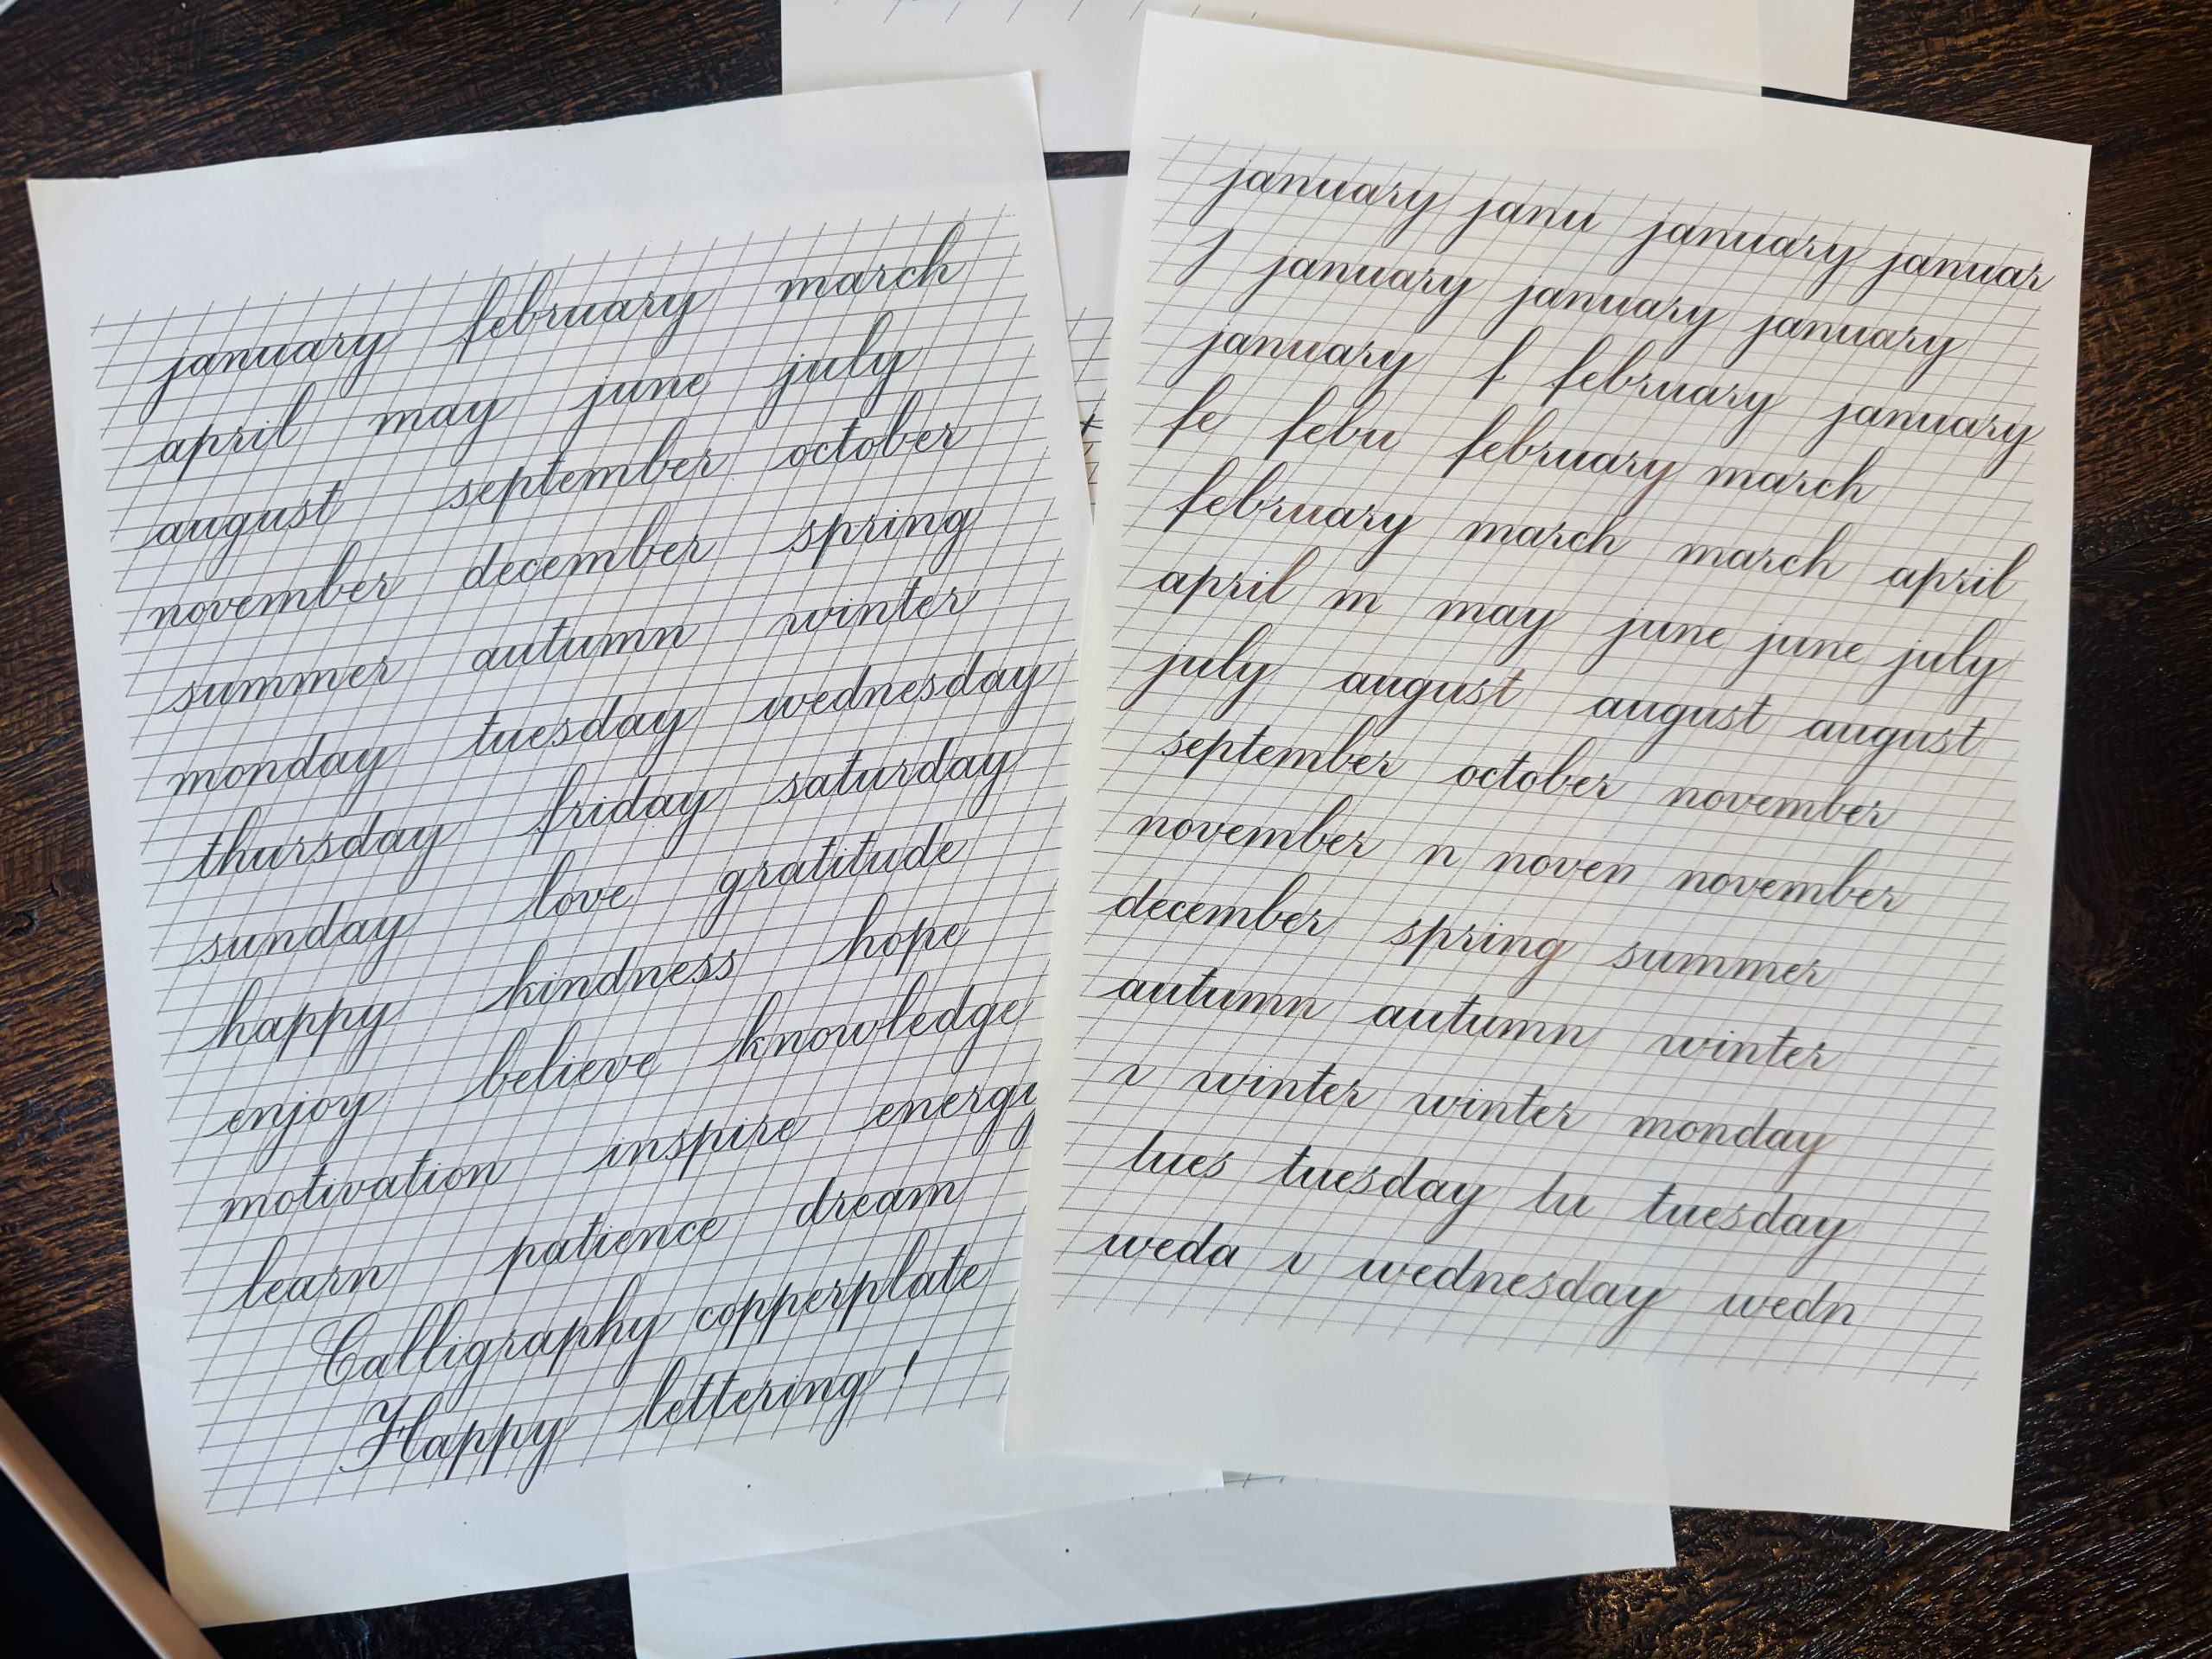 january february march
april may june july
august september october
november december spring
summer autumn winter
monday tuesday wednesday
thursday friday saturday
sunday love gratitude
happy kindness hope
enjoy believe knowledge
motivation inspire energy
learn patience dream
Calligraphy copperplate
Happy lettering!
january janu january januar
j january january january
january f february january
fe febu february march
february march march april
april m may june june july
july august august august
september october november
november n noven november
december spring summer
autumn autumn winter
winter winter monday
tues tuesday tu tuesday
weda wednesday wedn